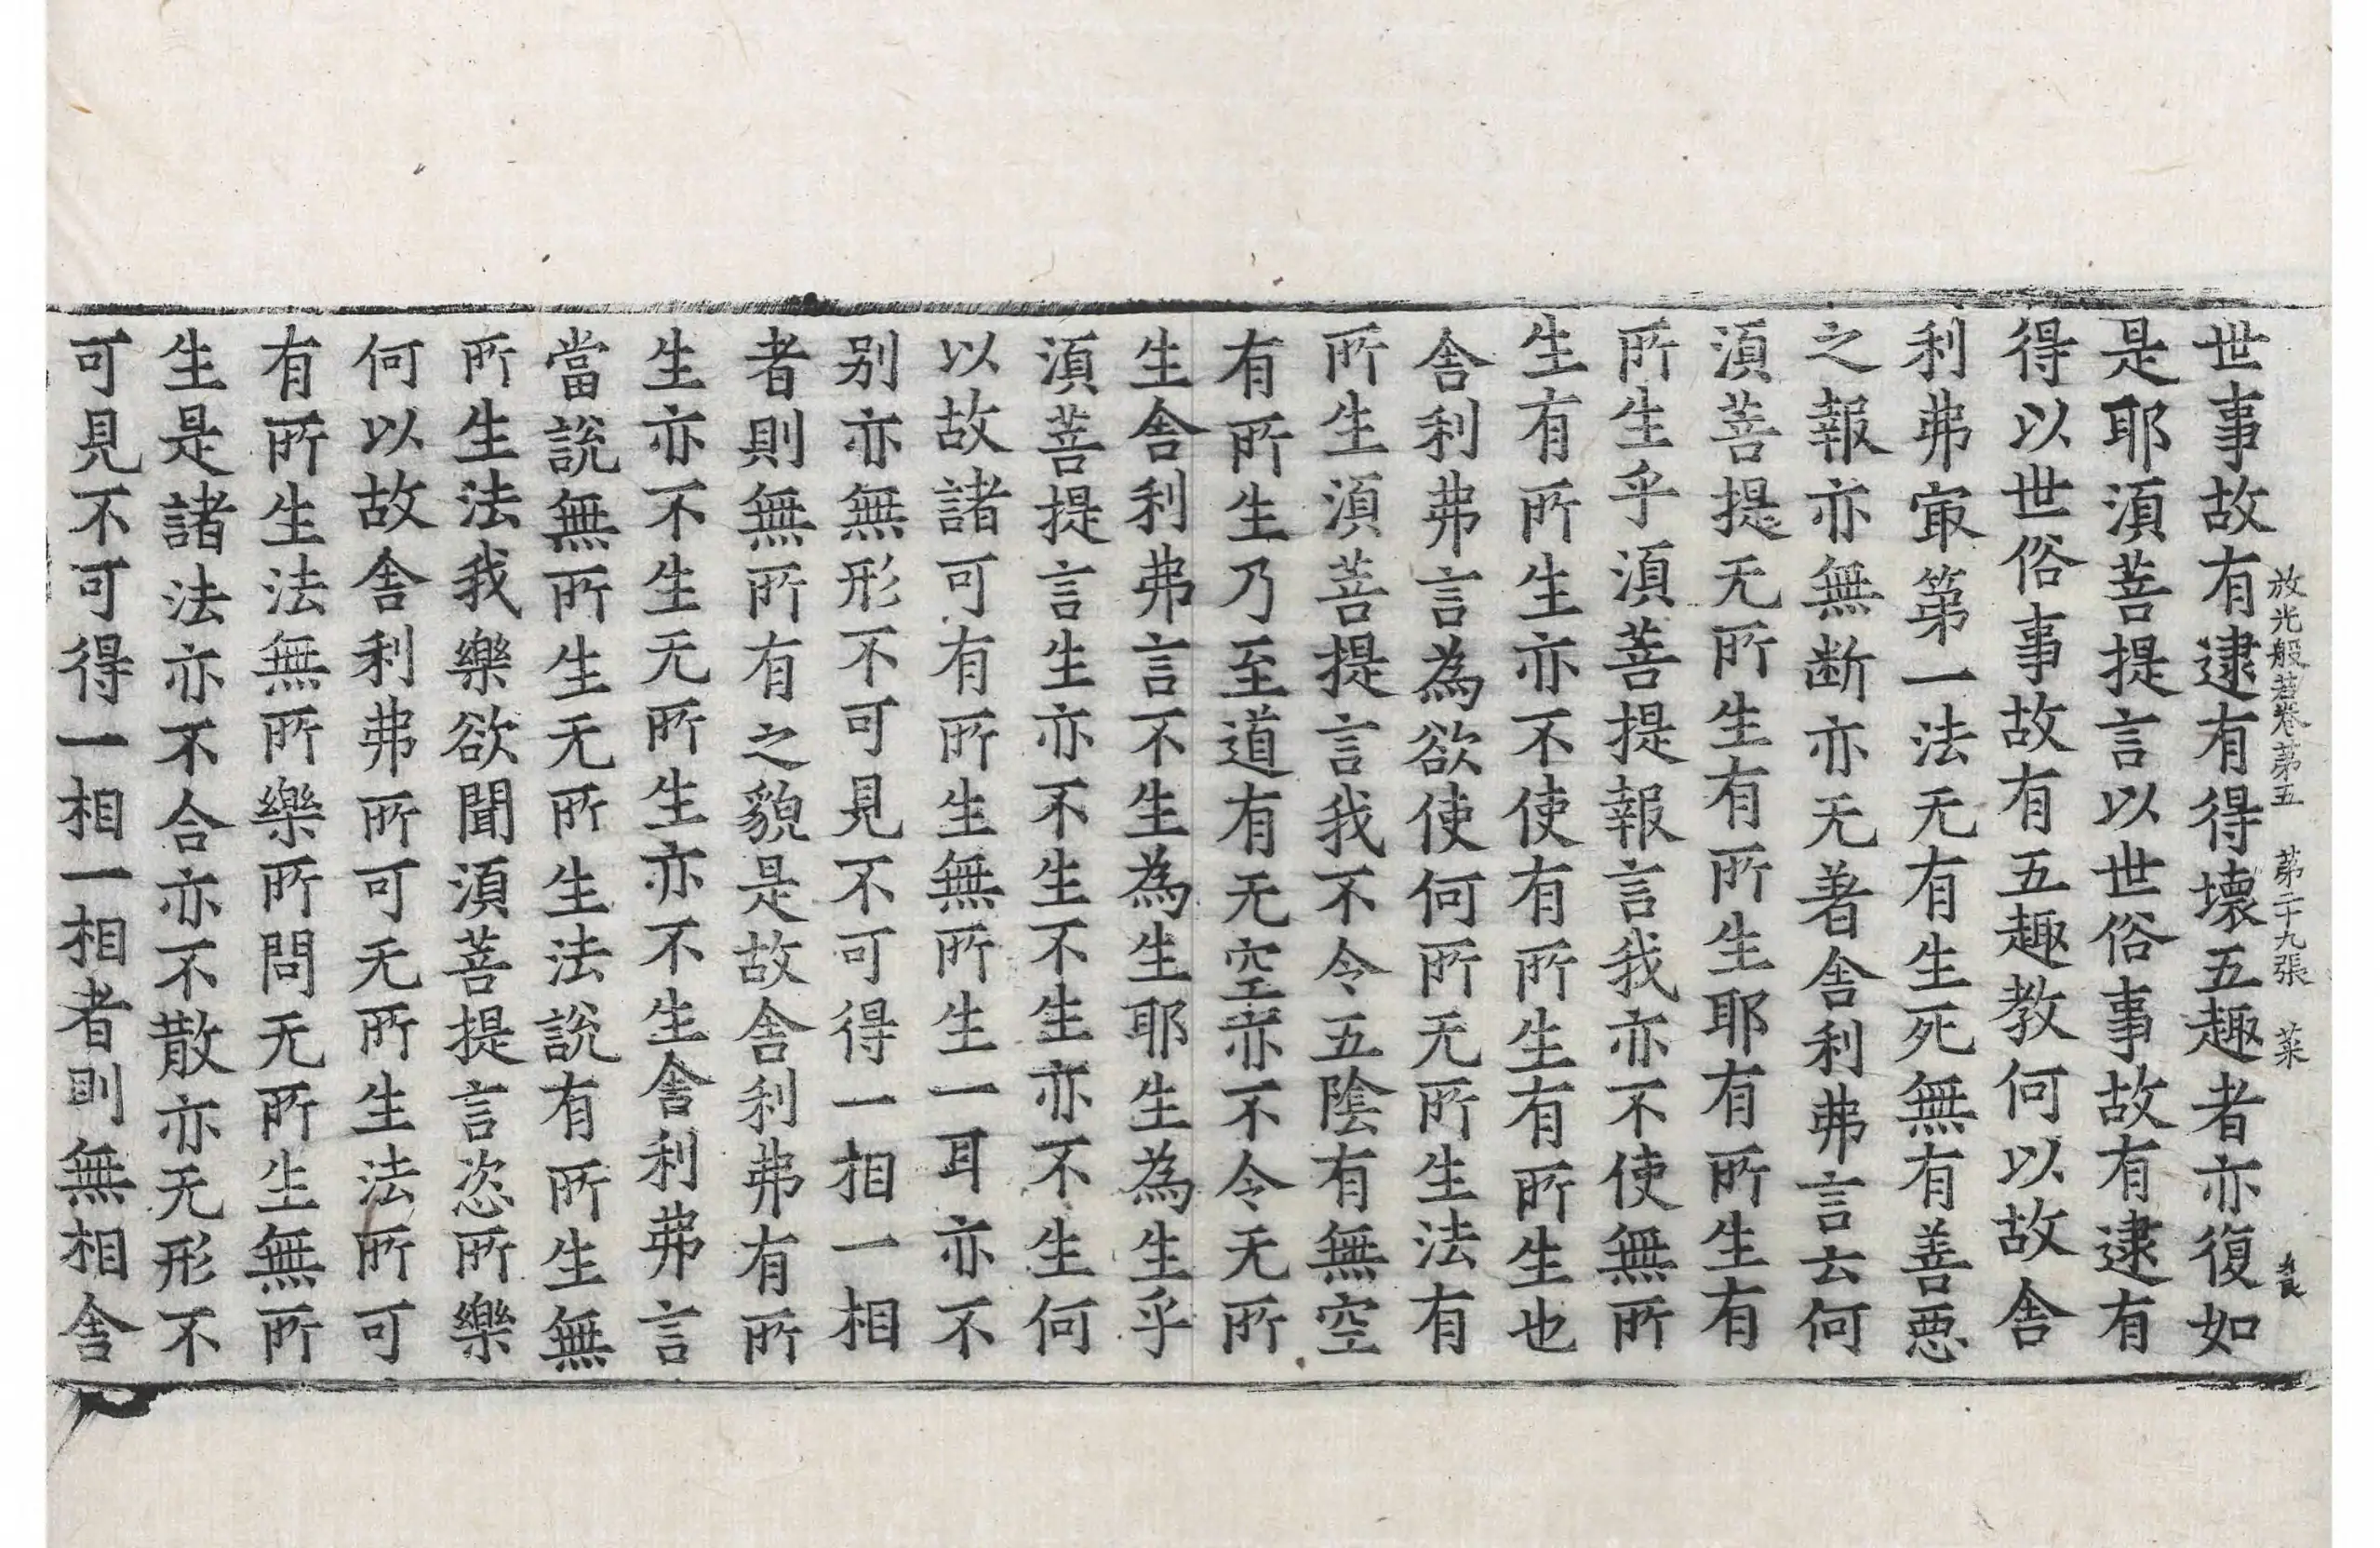 放光般若卷第五 第二十九張 菜
世事故有逮有得壞五趣者亦復如
是耶湏菩提言以世俗事故有逮有
得以世俗事故有五趣教何以故舍
利弗㝡第一法无有生死無有善悪
之報亦無断亦无著舍利弗言云何
湏菩提无所生有所生耶有所生有
所生乎湏菩提報言我亦不使無所
生有所生亦不使有所生有所生也
舍利弗言為欲使何所无所生法有
所生湏菩提言我不令五陰有無空
有所生乃至道有无空亦不令无所
生舍利弗言不生為生耶生為生乎
湏菩提言生亦不生不生亦不生何
以故諸可有所生無所生一耳亦不
别亦無形不可見不可得一相一相
者則無所有之貌是故舍利弗有所
生亦不生无所生亦不生舍利弗言
當説無所生无所生法説有所生無
所生法我樂欲聞湏菩提言恣所樂
何以故舍利弗所可无所生法所可
有所生法無所樂所問无所生無所
生是諸法亦不合亦不散亦无形不
可見不可得一相一相者則無相舍